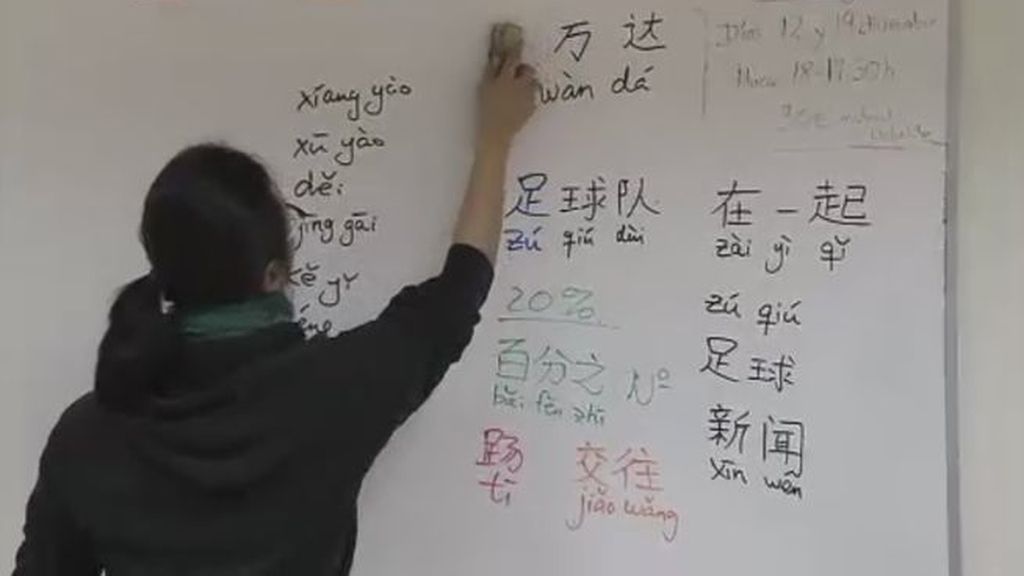 xiang yào
xū yào
děi
yīng gāi
kě yǐ
万达
wàn dá
Días 12 y 19 diciembre
Hora 18-19:30h
足球队
zú qiú duì
20%
百分之 Nº
bǎi fēn zhī
踢
tī
交往
jiāo wǎng
在一起
zài yì qǐ
zú qiú
足球
新闻
xīn wén